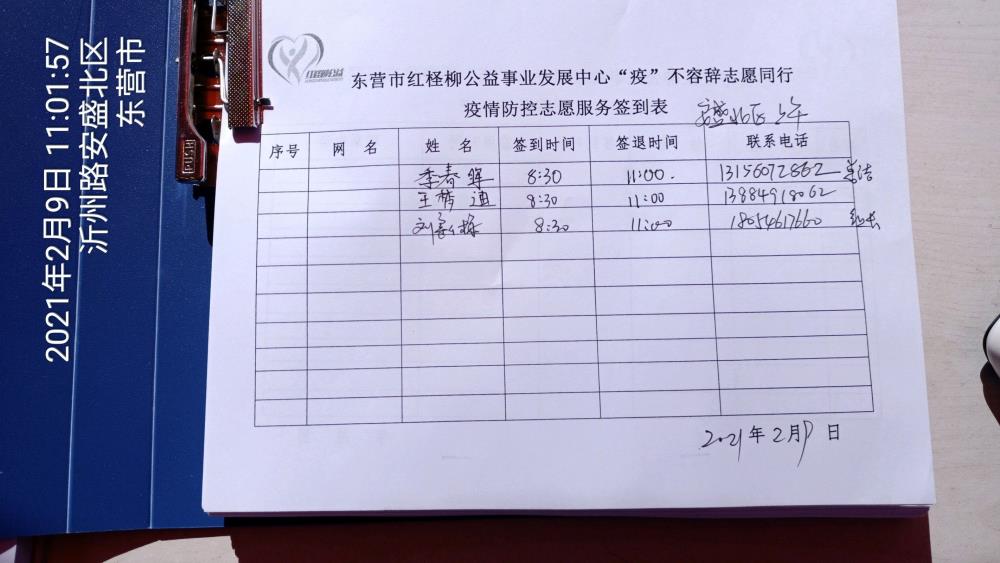 2021年2月9日 11:01:57
沂州路安盛北区
东营市
东营市红柽柳公益事业发展中心“疫”不容辞志愿同行
疫情防控志愿服务签到表 安盛北区 上午
序号 网 名 姓 名 签到时间 签退时间 联系电话
李春晖 8:30 11:00. 13156072862 总结
王梦迪 8:30 11:00 13884918062
刘 8:30 11:00 18054617660 组长
2021年2月9日
PUSH